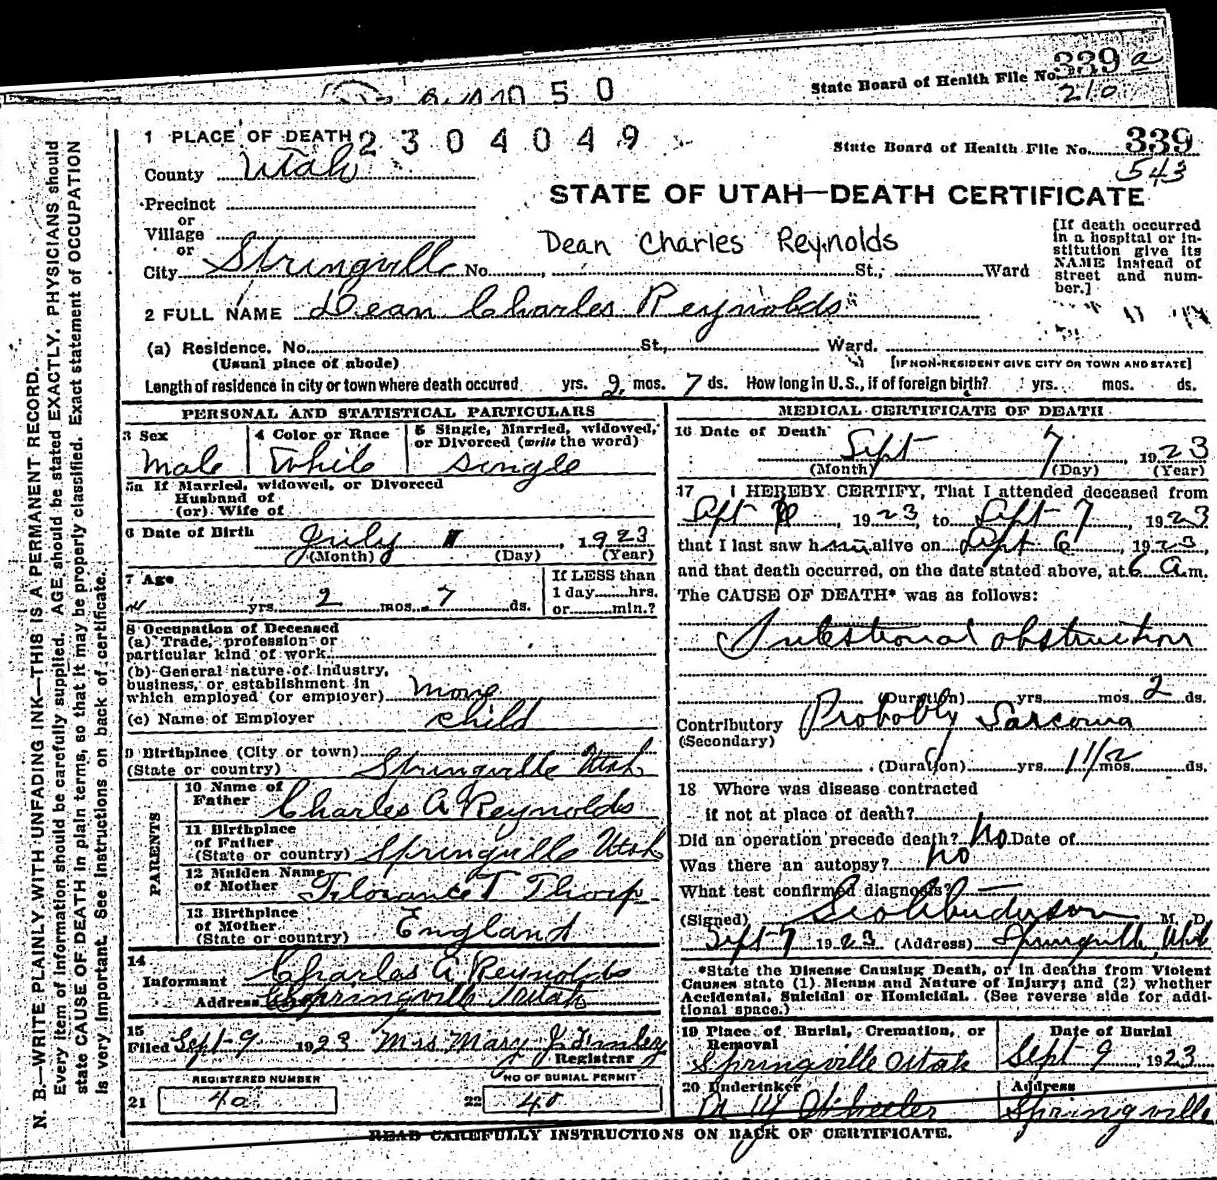 State Board of Health File No. 339 a
210
0 5 0
1 PLACE OF DEATH 2 3 0 4 0 4 9
State Board of Health File No. 339
543
County Utah
STATE OF UTAH—DEATH CERTIFICATE
Precinct
or
Village
or
City Springville No. St., Ward
Dean Charles Reynolds
[If death occurred in a hospital or institution give its NAME instead of street and number.]
2 FULL NAME Dean Charles Reynolds
(a) Residence. No. St., Ward.
(Usual place of abode) [IF NON-RESIDENT GIVE CITY OR TOWN AND STATE]
Length of residence in city or town where death occured yrs. 2 mos. 7 ds. How long in U. S., if of foreign birth? yrs. mos. ds.
PERSONAL AND STATISTICAL PARTICULARS
3 Sex Male
4 Color or Race White
5 Single, Married, widowed, or Divorced (write the word) Single
5a If Married, widowed, or Divorced
Husband of
(or) Wife of
6 Date of Birth July 1923
(Month) (Day) (Year)
7 Age yrs. 2 mos. 7 ds.
If LESS than
1 day hrs.
or min.?
8 Occupation of Deceased
(a) Trade, profession or
particular kind of work
(b) General nature of industry,
business, or establishment in
which employed (or employer) none
(c) Name of Employer child
9 Birthplace (City or town)
(State or country) Springville Utah
PARENTS
10 Name of Father Charles A Reynolds
11 Birthplace of Father
(State or country) Springville Utah
12 Maiden Name of Mother Florance T Thorp
13 Birthplace of Mother
(State or country) England
14
Informant Charles A. Reynolds
Address Springville Utah
15
Filed Sept-9 1923 Mrs Mary J.
Registrar
REGISTERED NUMBER
21 40
NO OF BURIAL PERMIT
22 40
MEDICAL CERTIFICATE OF DEATH
16 Date of Death Sept 7 1923
(Month) (Day) (Year)
17 I HEREBY CERTIFY, That I attended deceased from
Sept 1923 to Sept 7, 1923
that I last saw him alive on Sept 6, 1923,
and that death occurred, on the date stated above, at 6 a.m.
The CAUSE OF DEATH* was as follows:
Intestional obstruction
(Duration) yrs. mos. 2 ds.
Contributory Probobly Sarcoma
(Secondary)
(Duration) yrs. 1 1/2 mos. ds.
18 Where was disease contracted
if not at place of death?
Did an operation precede death? No Date of
Was there an autopsy? no
What test confirmed diagnosis? —
(Signed) Anderson M. D.
Sept-7 1923 (Address) Springville, Utah
*State the Disease Causing Death, or in deaths from Violent
Causes state (1) Means and Nature of Injury; and (2) whether
Accidental, Suicidal or Homicidal. (See reverse side for additional space.)
19 Place of Burial, Cremation, or Removal
Springville Utah
Date of Burial
Sept 9 1923
20 Undertaker
A Y Wheeler
Address
Springville
READ CAREFULLY INSTRUCTIONS ON BACK OF CERTIFICATE.
N. B.—WRITE PLAINLY WITH UNFADING INK—THIS IS A PERMANENT RECORD.
Every item of information should be carefully supplied. AGE should be stated EXACTLY. PHYSICIANS should
state CAUSE OF DEATH in plain terms, so that it may be properly classified. Exact statement of OCCUPATION
is very important. See instructions on back of certificate.